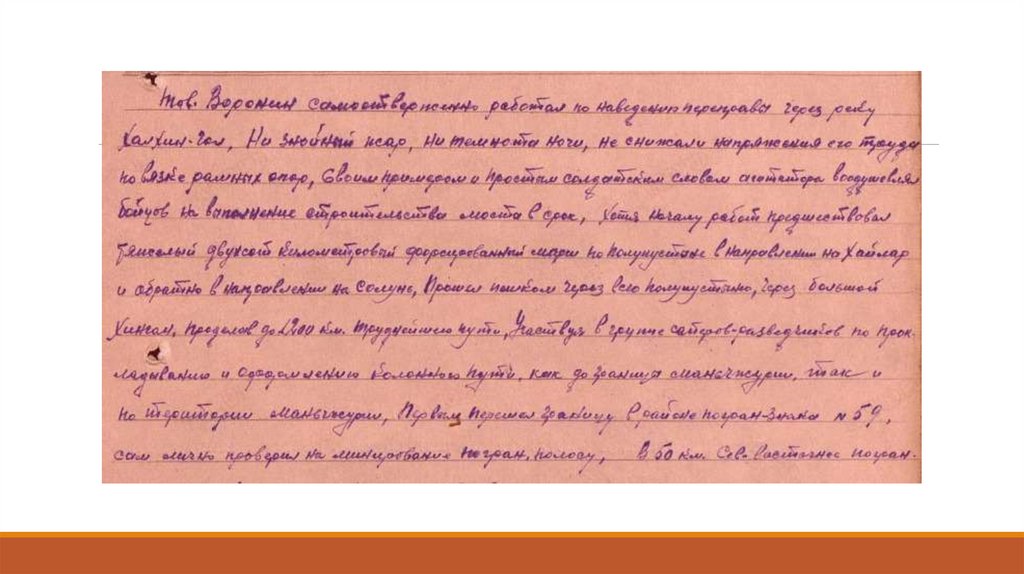 Тов. Воронин самоотверженно работал по наведению переправы через реку
Халхин-Гол, Ни знойный жар, ни темнота ночи, не снижали напряжения его труда
по вязке рамных опор, Своим примером и простым солдатским словом агитатора воодушевлял
бойцов на выполнение строительства моста в срок, Хотя началу работ предшествовал
тяжелый двухсот километровый форсированный марш по полупустыне в направлении на Хайлар
и обратно в направлении на Солунь, Прошел пешком через всю полупустыню, через большой
Хинган, проделав до 1200 км. труднейшего пути, Участвуя в группе саперов-разведчиков по прок-
ладыванию и оформлению колонного пути, как до границы Маньчжурии, так и
по територии Маньчжурии, Первым перешел границу в районе погран-знака № 59,
сам лично проверил на минирование погран, полосу, В 50 км. Сев-Восточнее погран-